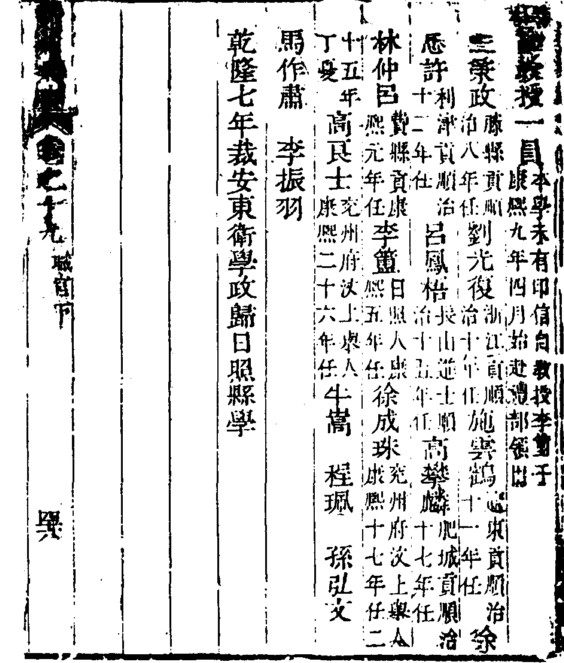 教授一員本學未有印信自教授李簠于康熙九年四月始赴禮部領出
榮政滕縣貢順治八年任劉光復浙江貢順治十年任施雲鶴東貢順治十一年任徐
許利津貢順治十二年任呂鳳梧長山進士順治十五年任高攀麟肥城貢順治十七年任
林仲呂費縣貢康熙元年任李簠日照人康熙五年任徐成珠兖州府汶上舉人康熙十七年任二
十五年丁憂高良士兖州府汶上舉人康熙二十六年任牛嵩 程珮 孫弘文
馬作肅 李振羽
乾隆七年裁安東衛學政歸日照縣學
卷之十九 職官下